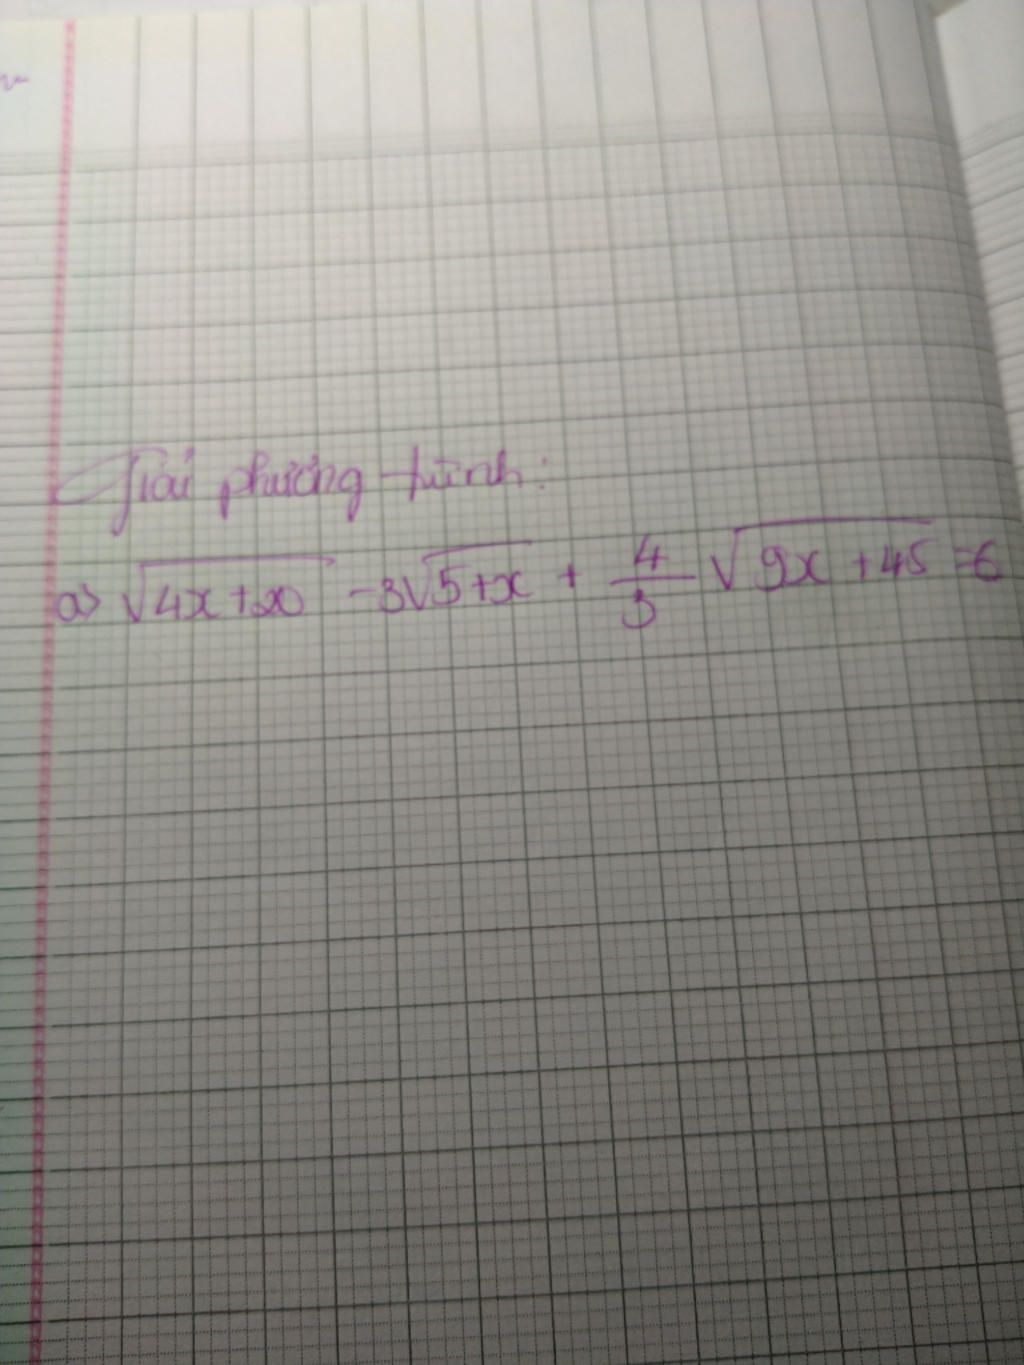 Giải phương trình:
a) √(4x+20) -3√(5+x) + 4/3 √(9x+45) =6